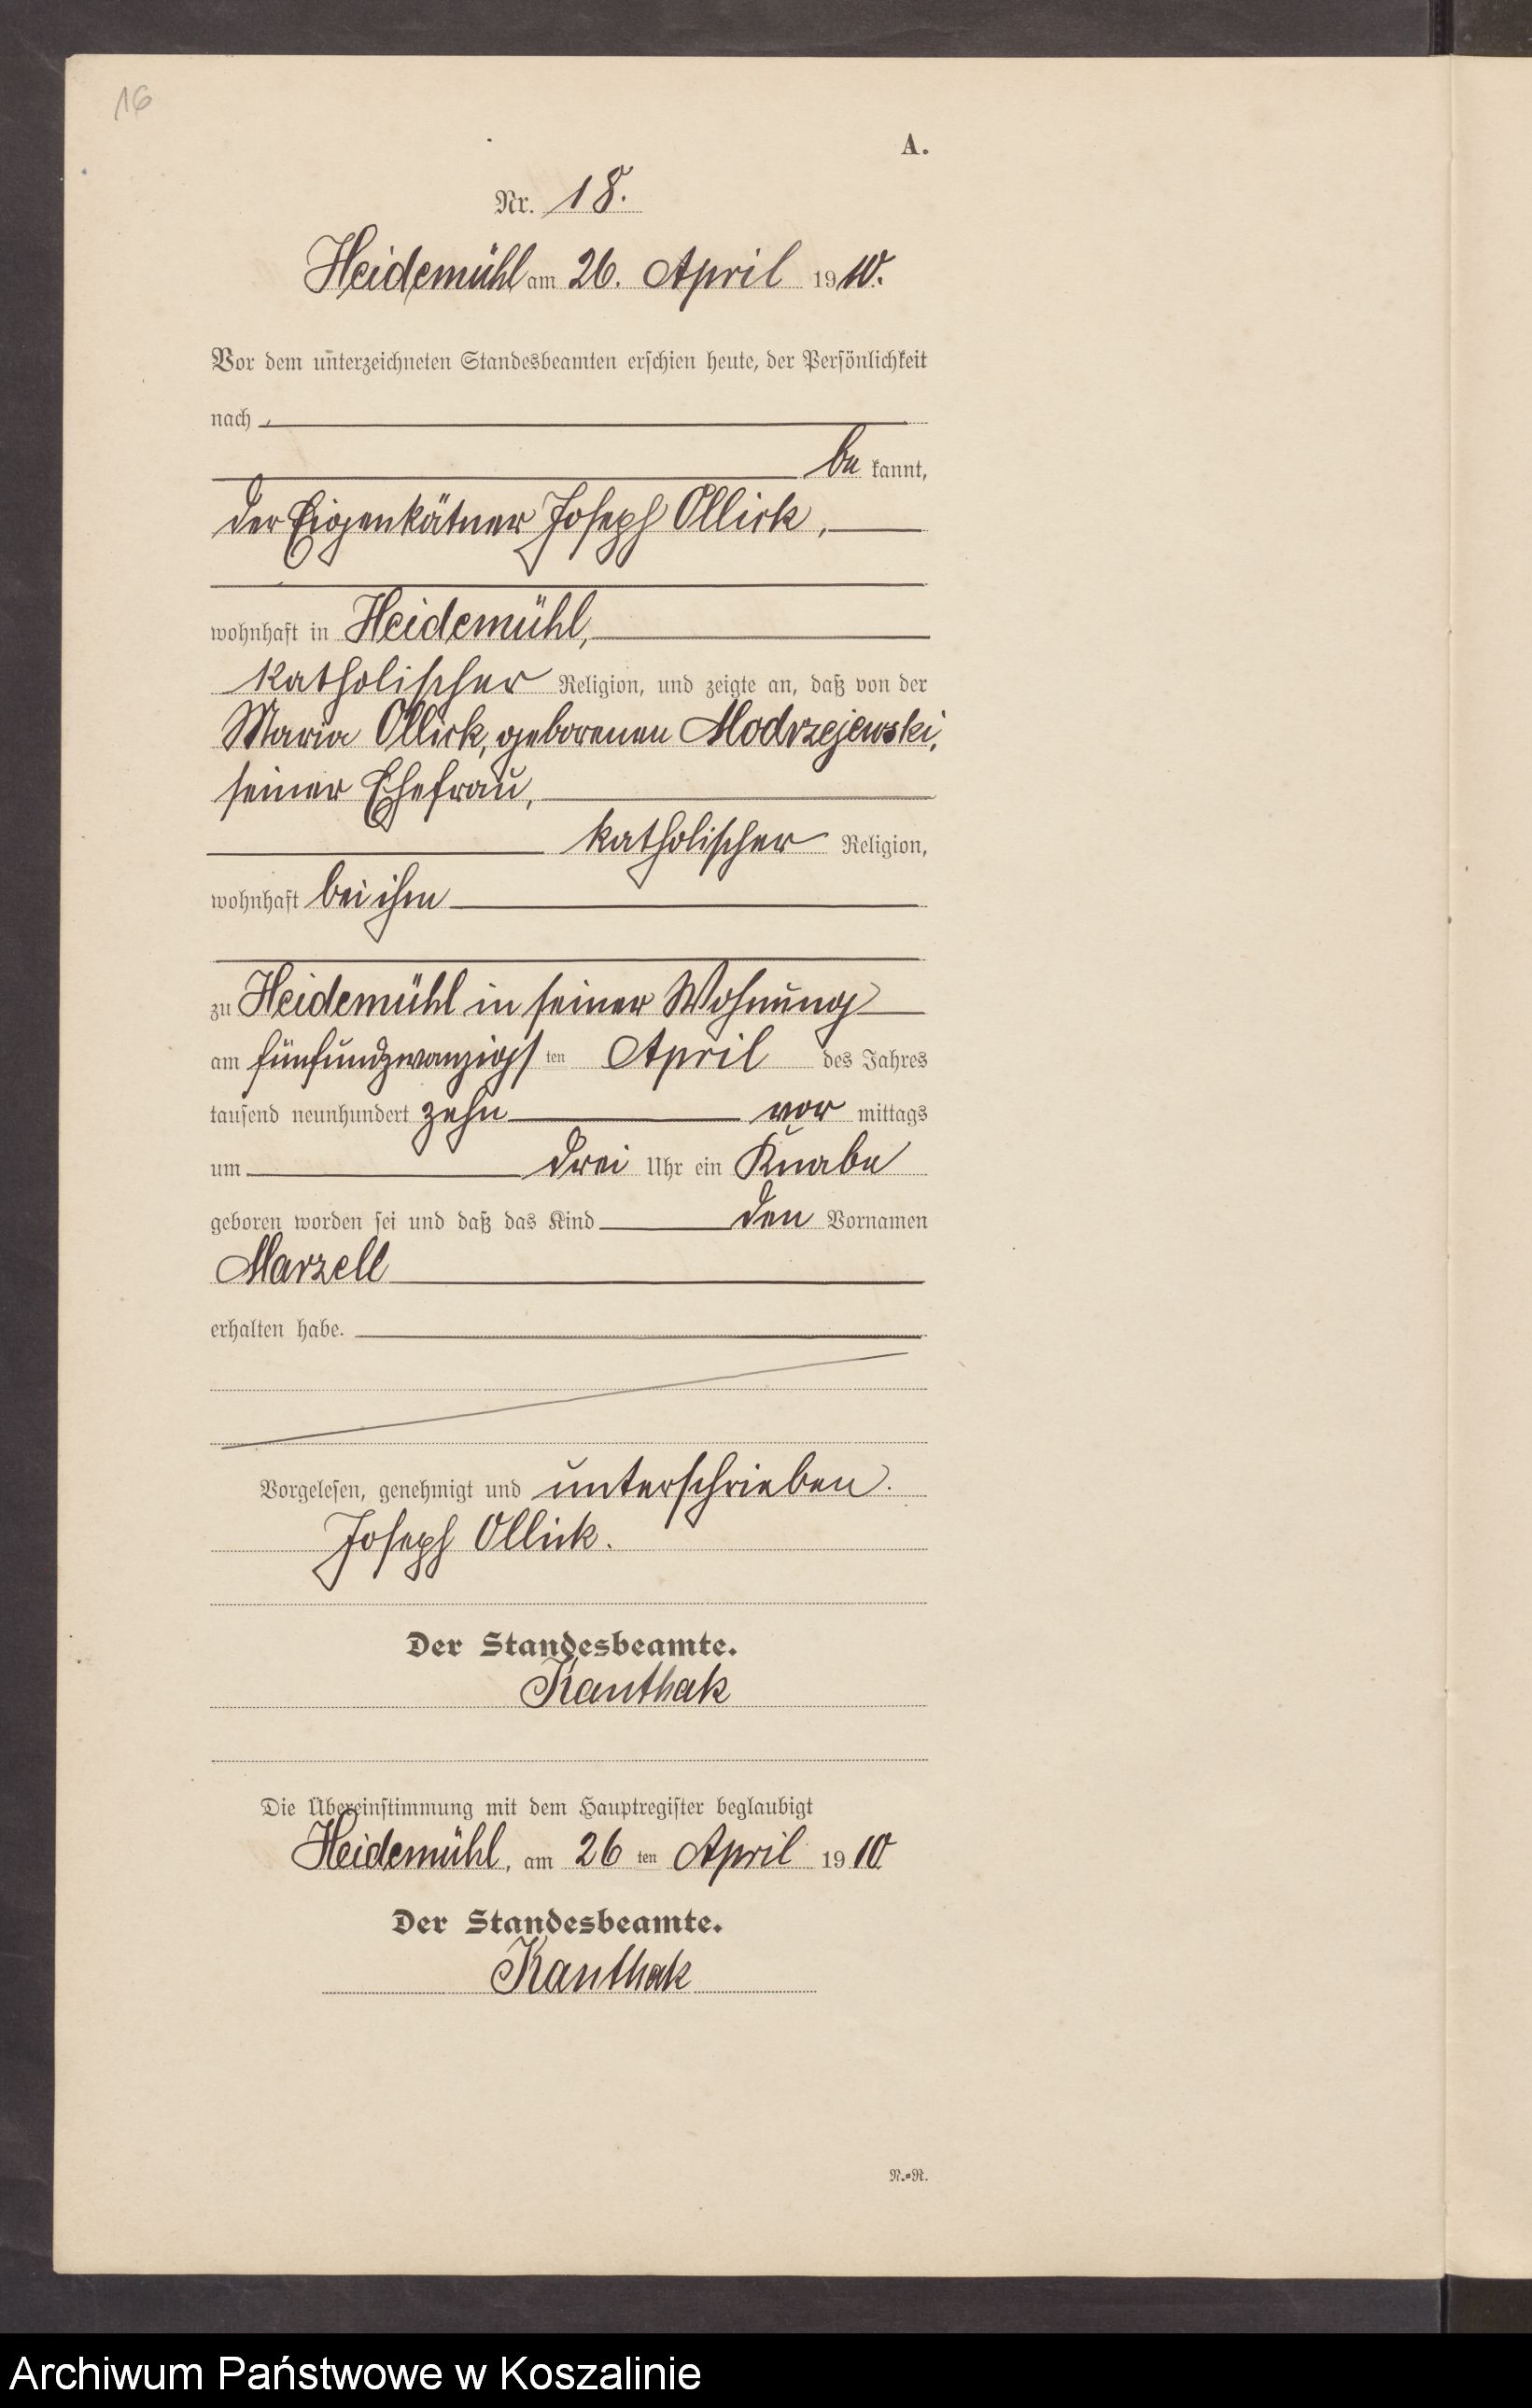 16
A.
Nr. 18.
Heidemühl am 26. April 1910.
Vor dem unterzeichneten Standesbeamten erschien heute, der Persönlichkeit
nach
be kannt,
der Eigenkätner Joseph Ollick,
wohnhaft in Heidemühl,
katholischer Religion, und zeigte an, daß von der
Maria Ollick, geborenen Modrzejewski,
seiner Ehefrau,
katholischer Religion,
wohnhaft bei ihm
zu Heidemühl in seiner Wohnung
am fünfundzwanzigs ten April des Jahres
tausend neunhundert zehn vor mittags
um drei Uhr ein Knabe
geboren worden sei und daß das Kind den Vornamen
Marzell
erhalten habe.
Vorgelesen, genehmigt und unterschrieben.
Joseph Ollick.
Der Standesbeamte.
Kanthak
Die Übereinstimmung mit dem Hauptregister beglaubigt
Heidemühl, am 26 ten April 1910
Der Standesbeamte.
Kanthak
N.=R.
Archiwum Państwowe w Koszalinie